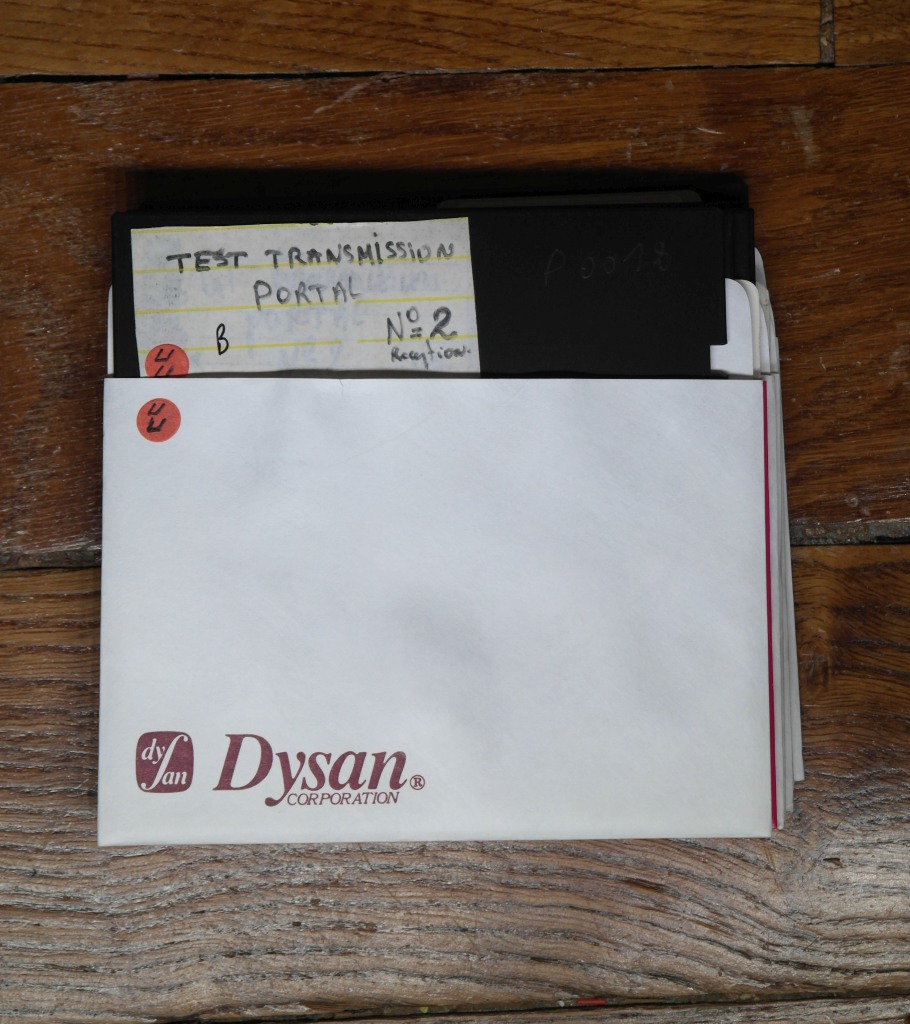 TEST TRANSMISSION
PORTAL
B
Nº 2
Reception
P 0048
dysan
Dysan®
CORPORATION